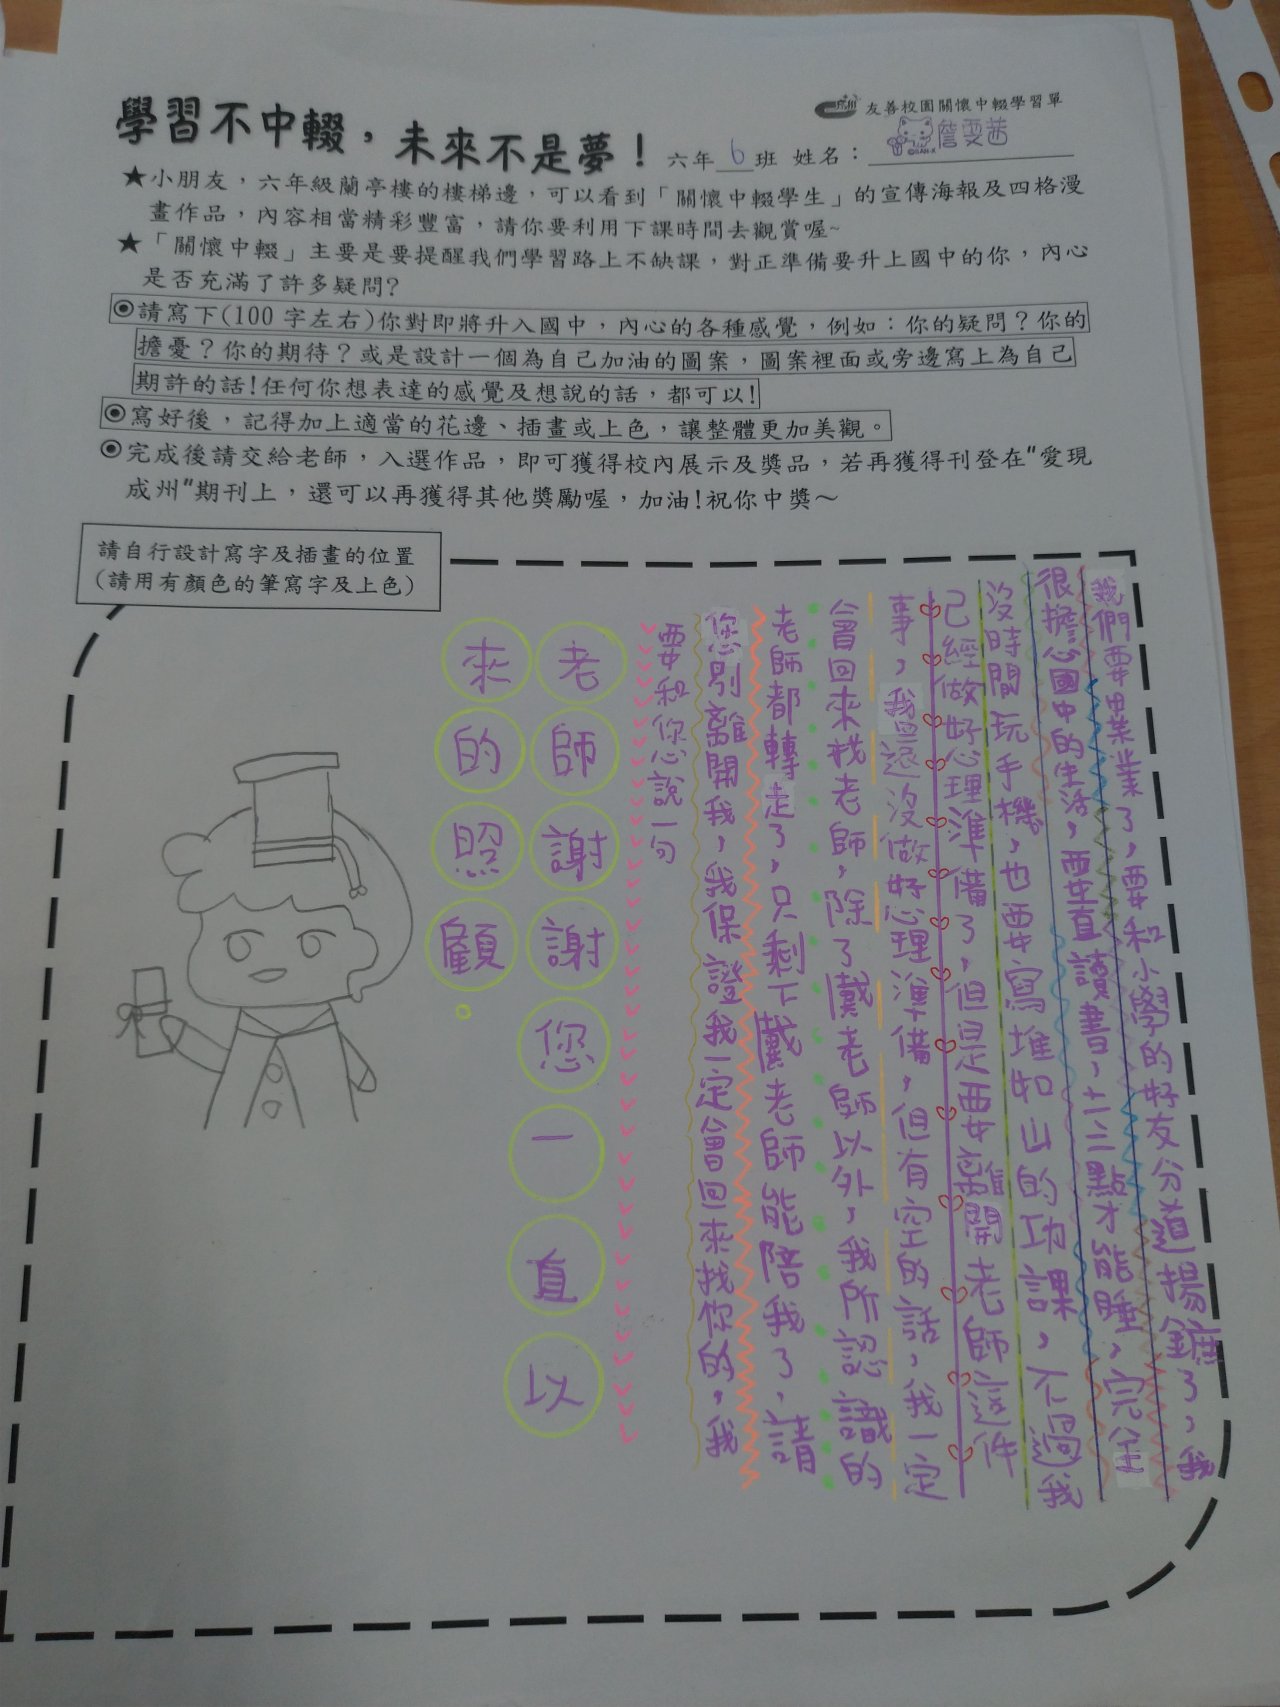 友善校園關懷中輟學習單
學習不中輟，未來不是夢！
六年6班 姓名：詹雯茜
★小朋友，六年級蘭亭樓的樓梯邊，可以看到「關懷中輟學生」的宣傳海報及四格漫
畫作品，內容相當精彩豐富，請你要利用下課時間去觀賞喔~
★「關懷中輟」主要是要提醒我們學習路上不缺課，對正準備要升上國中的你，內心
是否充滿了許多疑問?
◉請寫下(100字左右)你對即將升入國中，內心的各種感覺，例如：你的疑問？你的
擔憂？你的期待？或是設計一個為自己加油的圖案，圖案裡面或旁邊寫上為自己
期許的話!任何你想表達的感覺及想說的話，都可以!
◉寫好後，記得加上適當的花邊、插畫或上色，讓整體更加美觀。
◉完成後請交給老師，入選作品，即可獲得校內展示及獎品，若再獲得刊登在"愛現
成州"期刊上，還可以再獲得其他獎勵喔，加油!祝你中獎～
請自行設計寫字及插畫的位置
(請用有顏色的筆寫字及上色)
我們要畢業了，要和小學的好友分道揚鑣了，我
很擔心國中的生活，要一直讀書，十二三點才能睡，完全
沒時間玩手機，也要寫堆如山的功課，不過我
已經做好心理準備了，但是要離開老師這件
事，我還沒做好心理準備，但有空的話，我一定
會回來找老師，除了戴老師以外，我所認識的
老師都轉走了，只剩下戴老師能陪我了，請
您別離開我，我保證我一定會回來找你的，我
要和你說一句
老師謝謝您一直以
來的照顧。